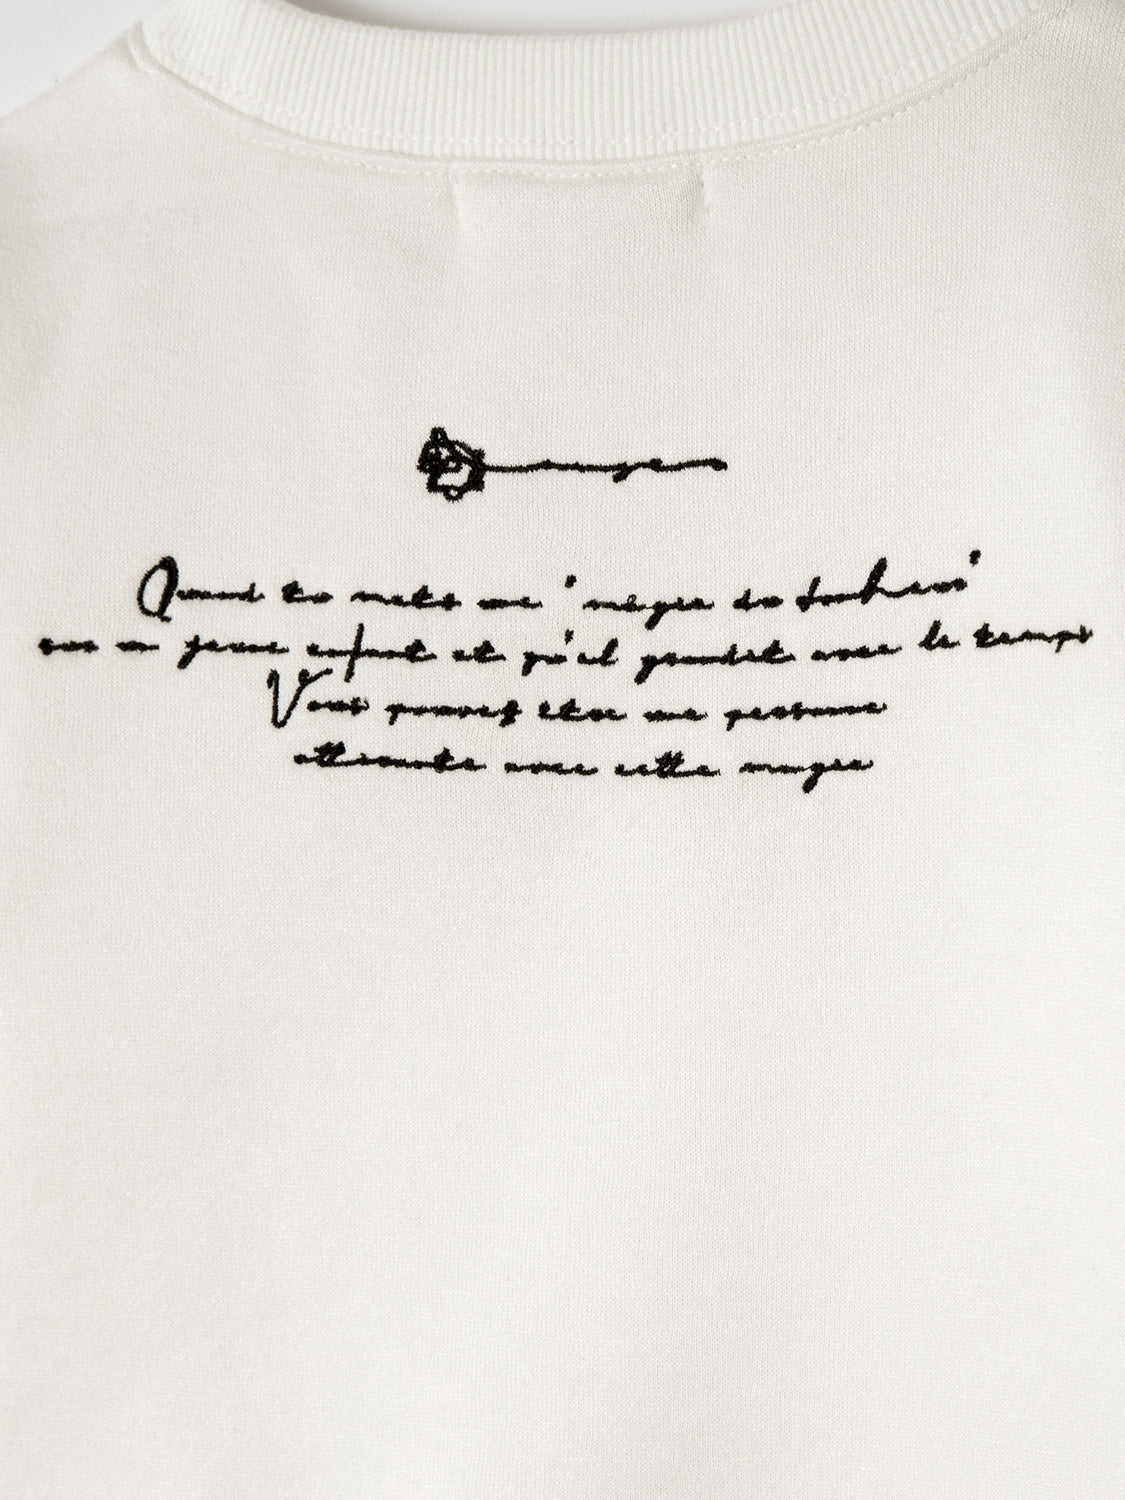 Quand tu mets une "magie du bonheur"
sur un jeune enfant et qu'il grandit avec le temps
Vous pouvez être une personne
attirante avec cette magie